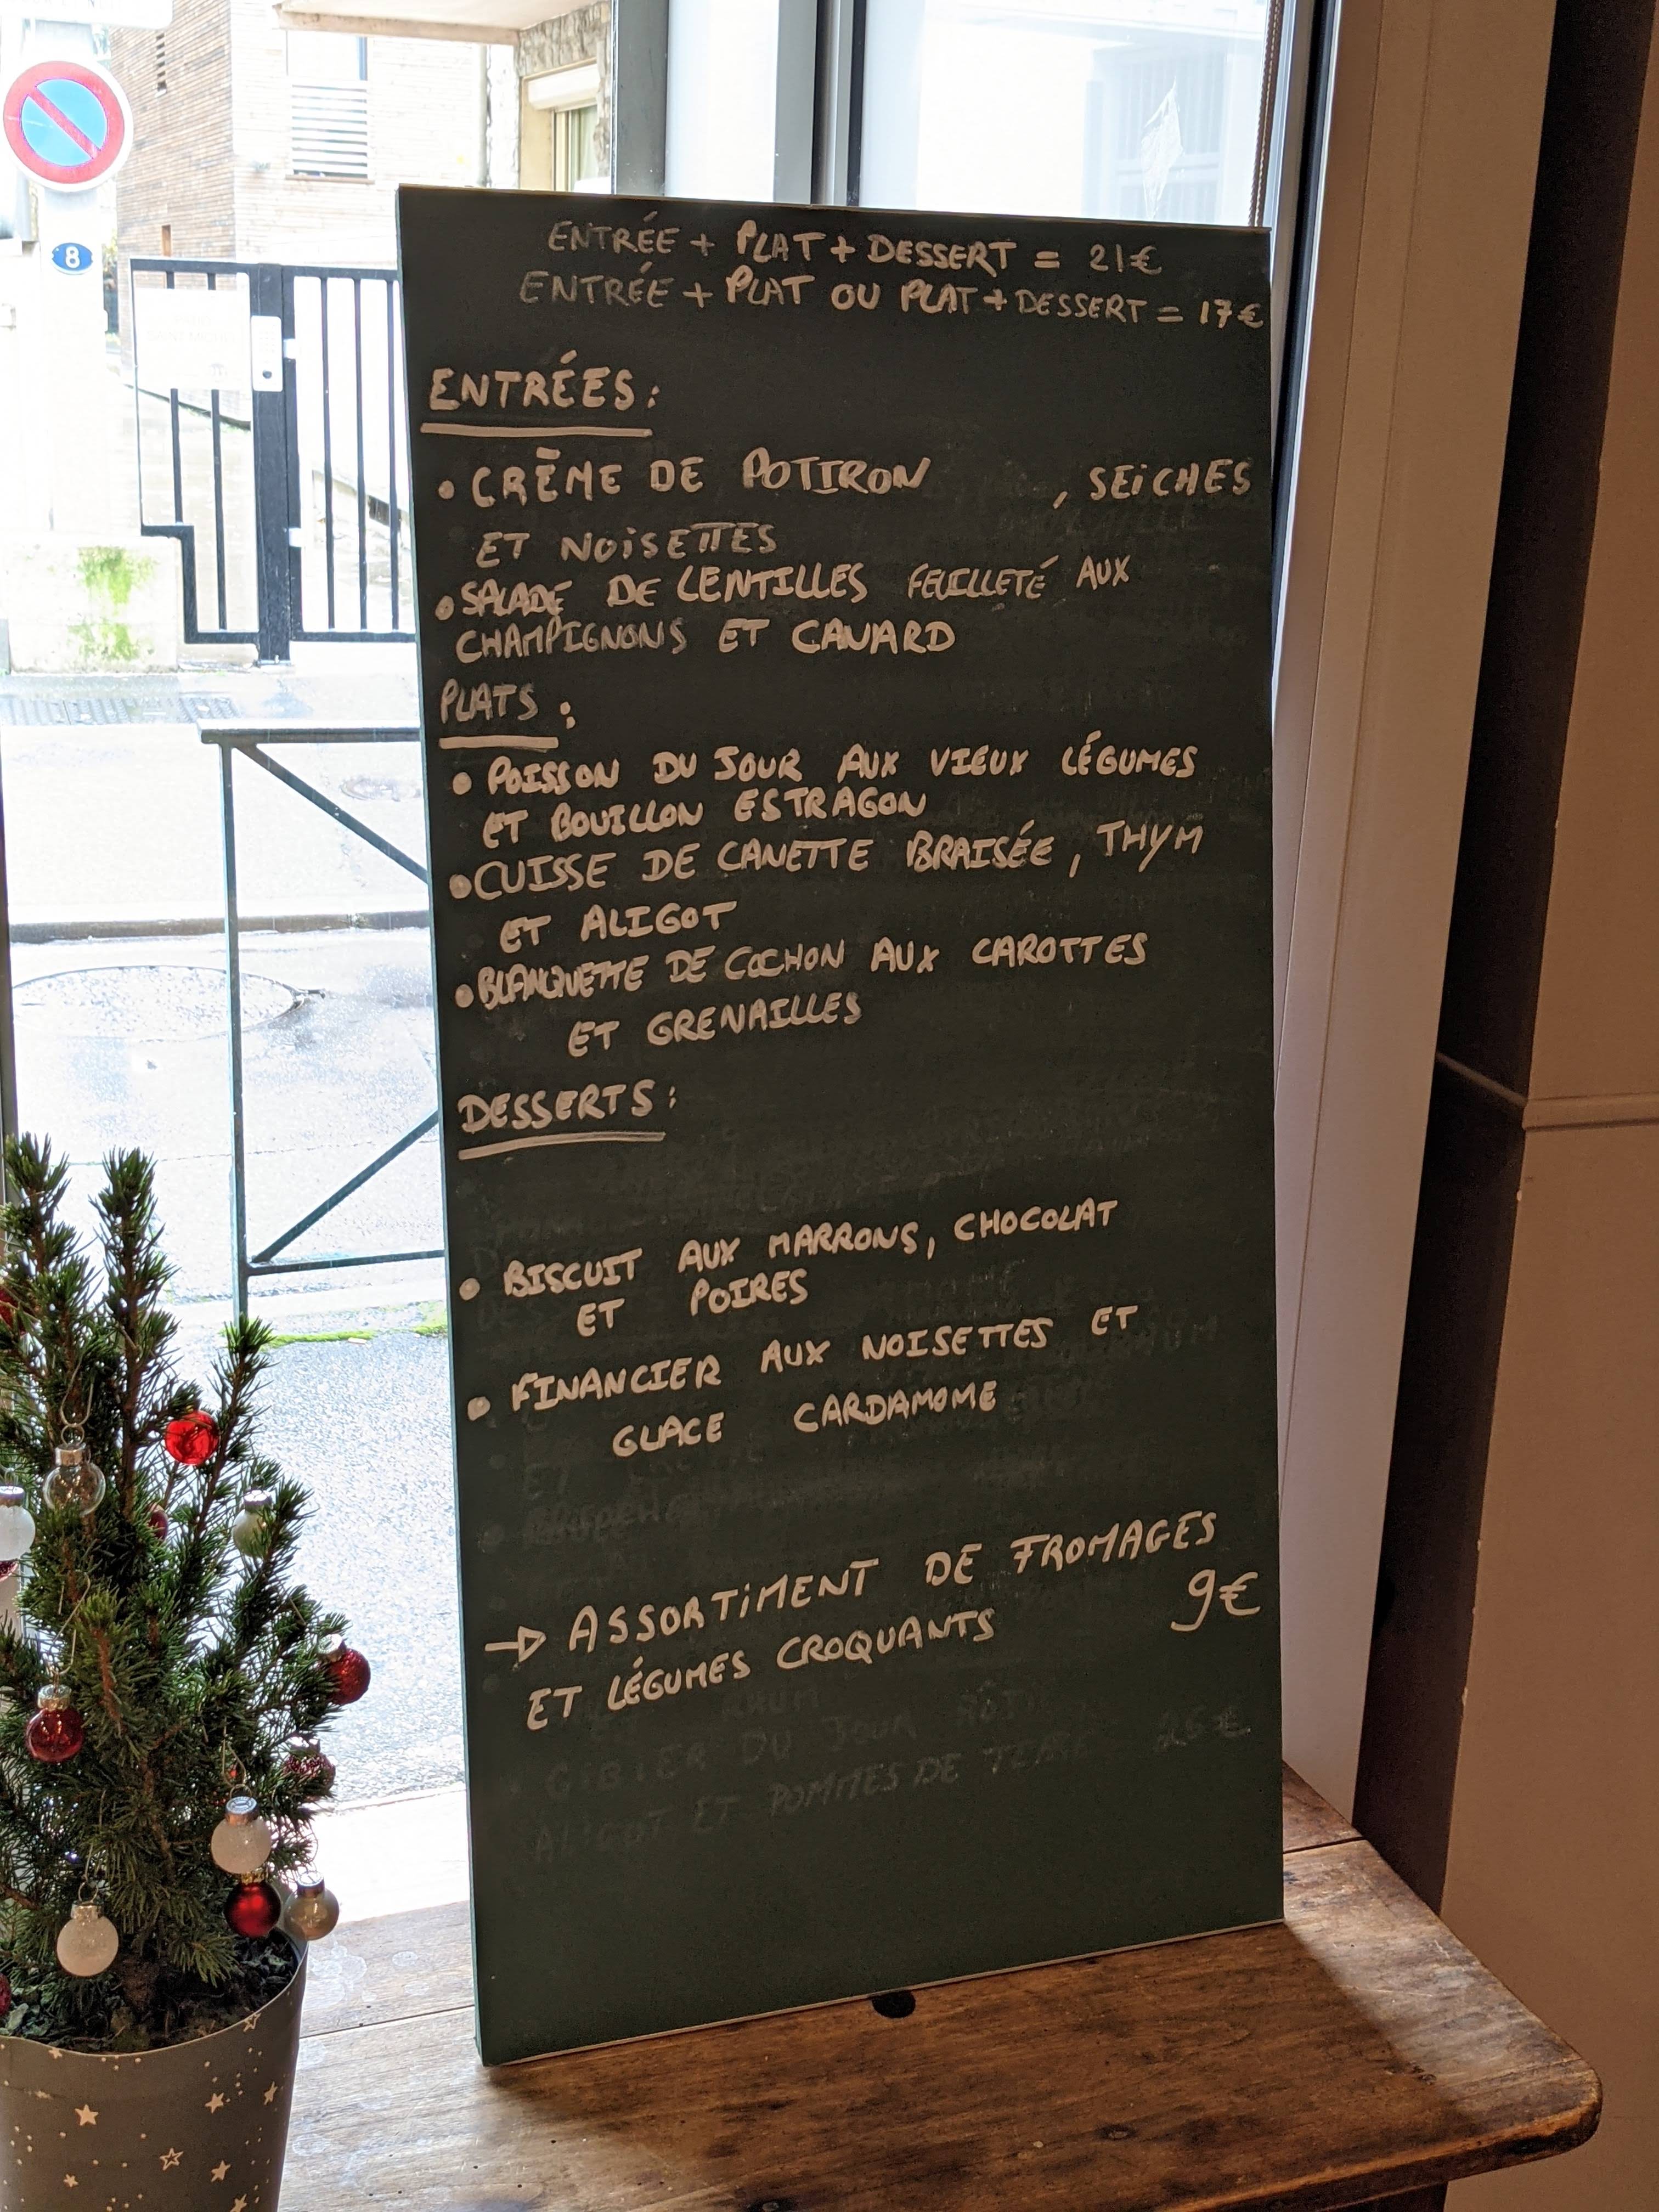 8
ENTRÉE + PLAT + DESSERT = 21€
ENTRÉE + PLAT OU PLAT + DESSERT = 17€
ENTRÉES :
• CRÈME DE POTIRON , SEICHES
ET NOISETTES
• SALADE DE LENTILLES FEUILLETÉ AUX
CHAMPIGNONS ET CANARD
PLATS :
• POISSON DU JOUR AUX VIEUX LÉGUMES
ET BOUILLON ESTRAGON
• CUISSE DE CANETTE BRAISÉE, THYM
ET ALIGOT
• BLANQUETTE DE COCHON AUX CAROTTES
ET GRENAILLES
DESSERTS :
• BISCUIT AUX MARRONS, CHOCOLAT
ET POIRES
• FINANCIER AUX NOISETTES ET
GLACE CARDAMOME
→ ASSORTIMENT DE FROMAGES
ET LÉGUMES CROQUANTS 9€
GIBIER DU JOUR RÔTI
ALIGOT ET POMMES DE TERRE